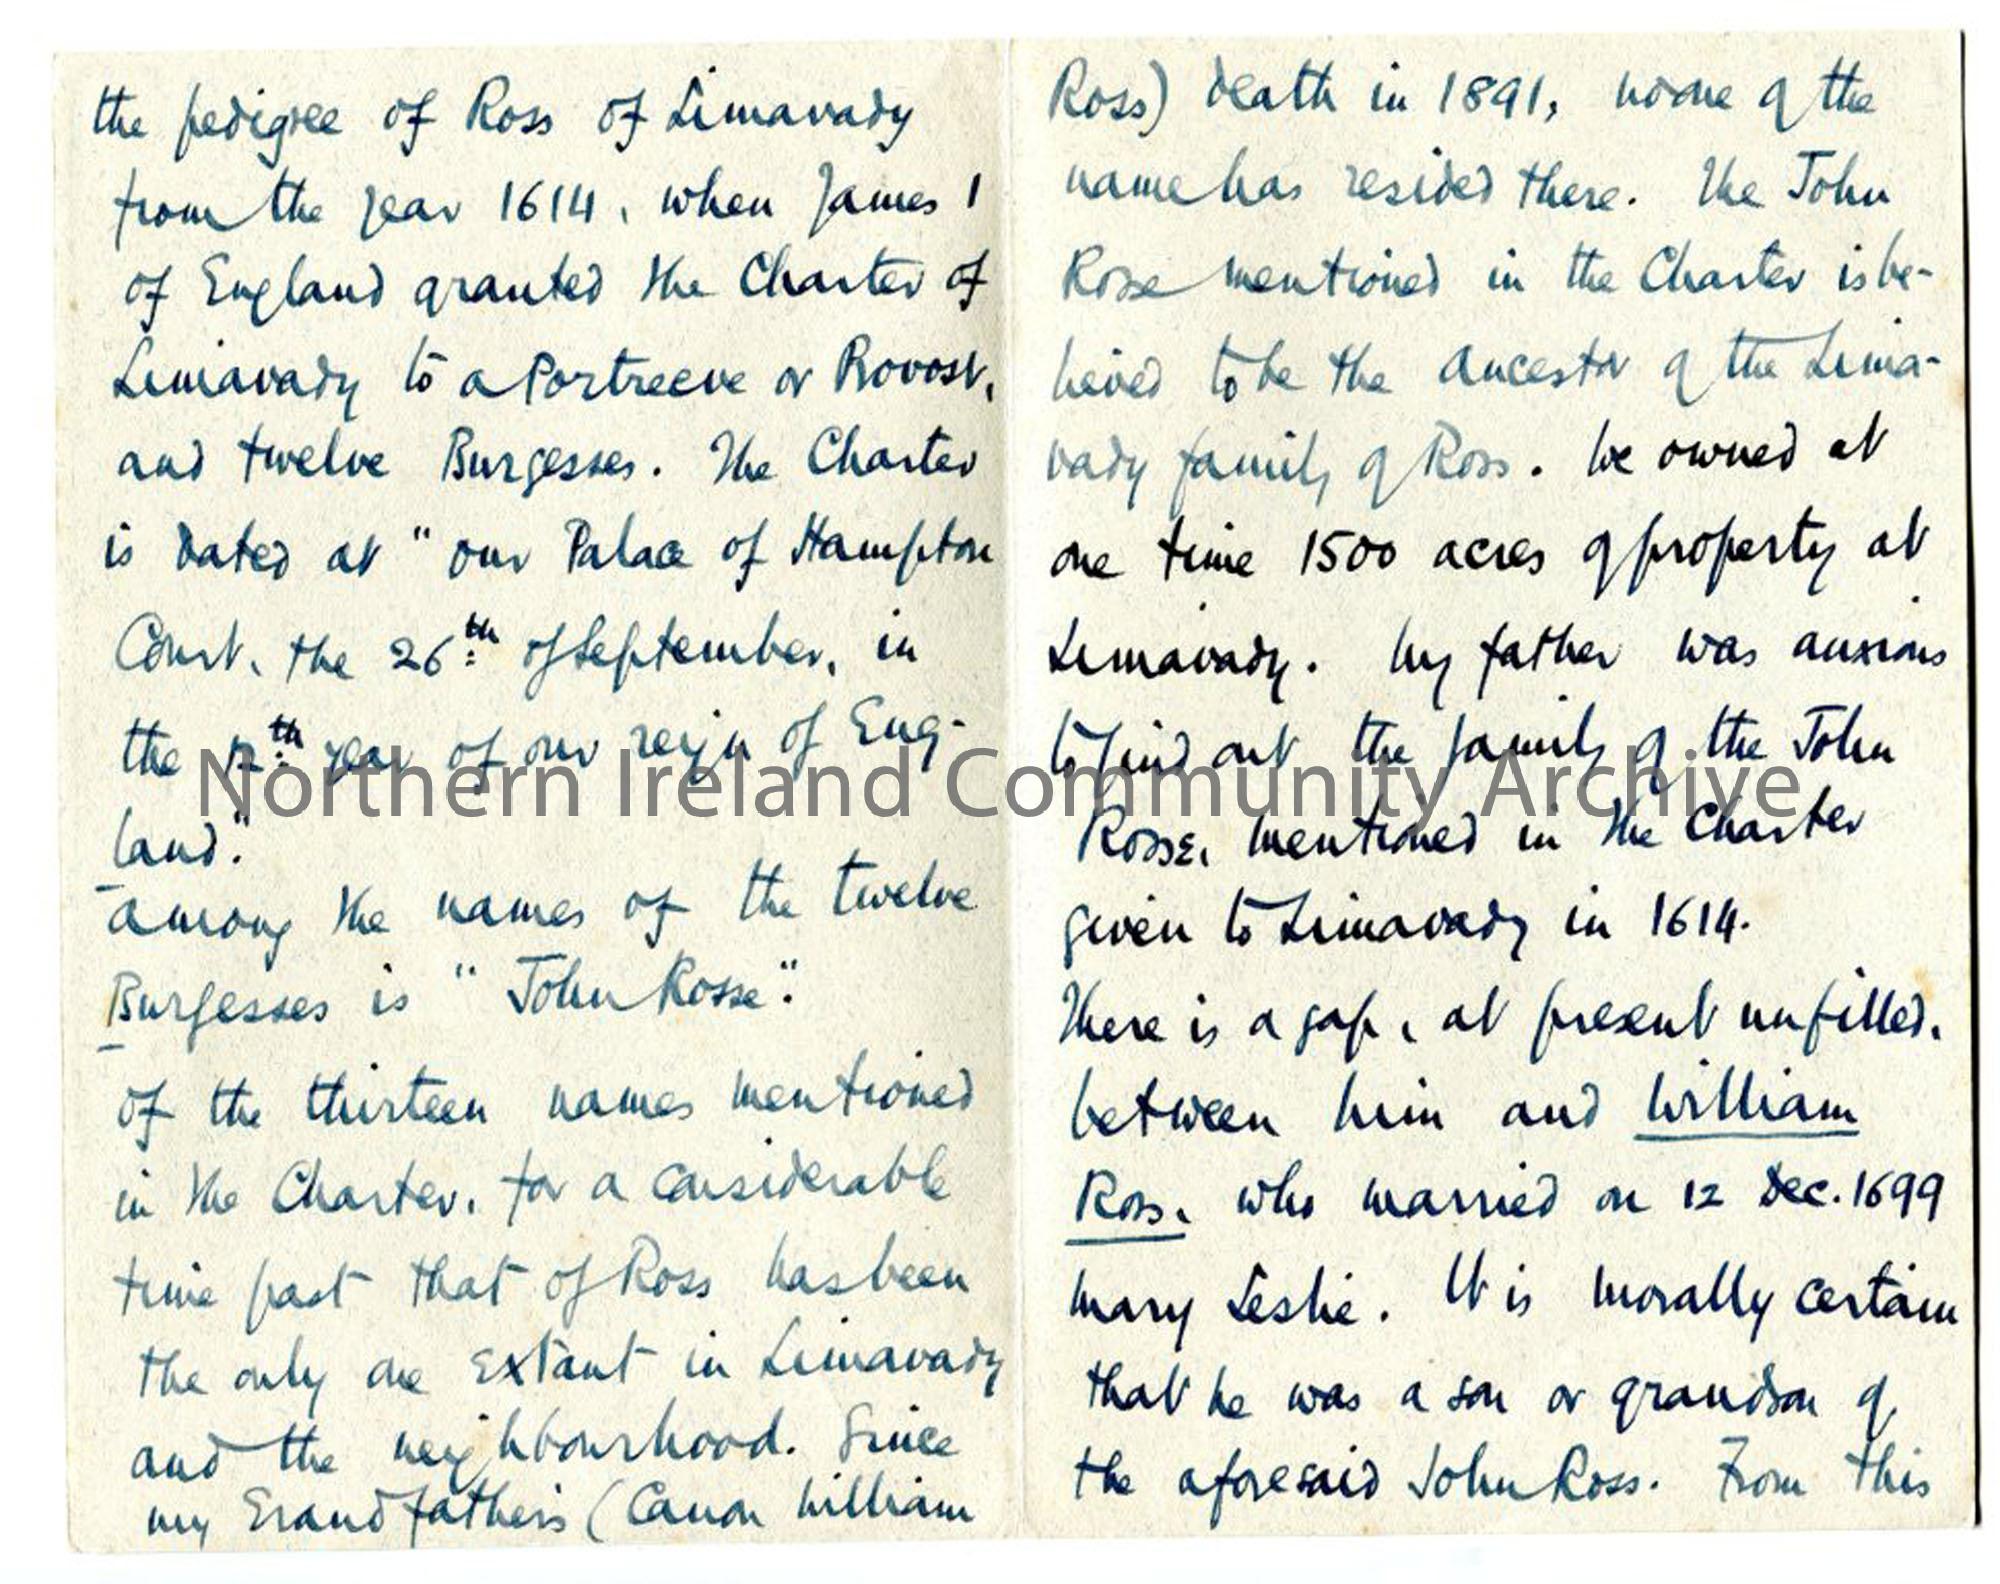 the pedigree of Ross of Limavady
from the year 1614, when James 1
of England granted the Charter of
Limavady to a Portreeve or Provost,
and twelve Burgesses. The Charter
is dated at "our Palace of Hampton
Court, the 26th of September, in
the 12th year of our reign of Eng-
land."
Among the names of the twelve
Burgesses is "John Rosse".
Of the thirteen names mentioned
in the Charter, for a considerable
time past that of Ross has been
the only one extant in Limavady
and the neighbourhood. Since
my Grandfather's (Canon William
Ross) death in 1891, no one of the
name has resided there. The John
Rosse mentioned in the Charter is be-
lieved to be the ancestor of the Lima-
vady family of Ross. He owned at
one time 1500 acres of property at
Limavady. My father was anxious
to find out the family of the John
Rosse, mentioned in the Charter
given to Limavady in 1614.
There is a gap, at present unfilled,
between him and William
Ross, who married on 12 Dec. 1699
Mary Leslie. It is morally certain
that he was a son or grandson of
the aforesaid John Ross. From this
Northern Ireland Community Archive